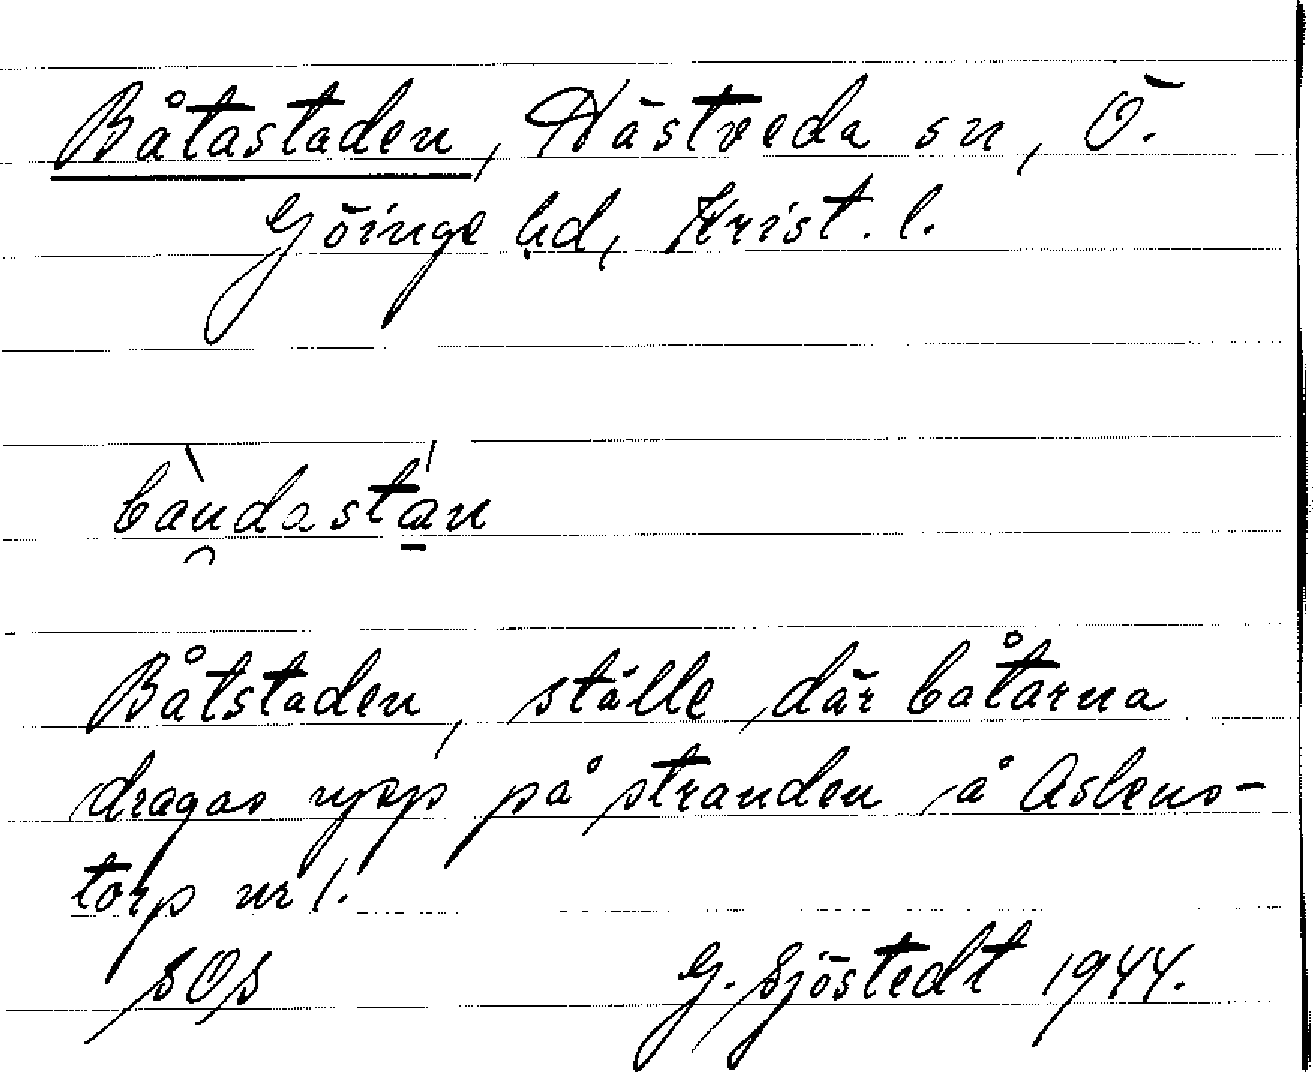 Båtastaden, Hästveda sn, Ö.
Göinge hd, Krist. l.
bàu̯dastá̱n
Båtstaden, ställe där båtarna
dragas upp på stranden å Asbens-
torp nr 1.
SOS G. Sjöstedt 1944.